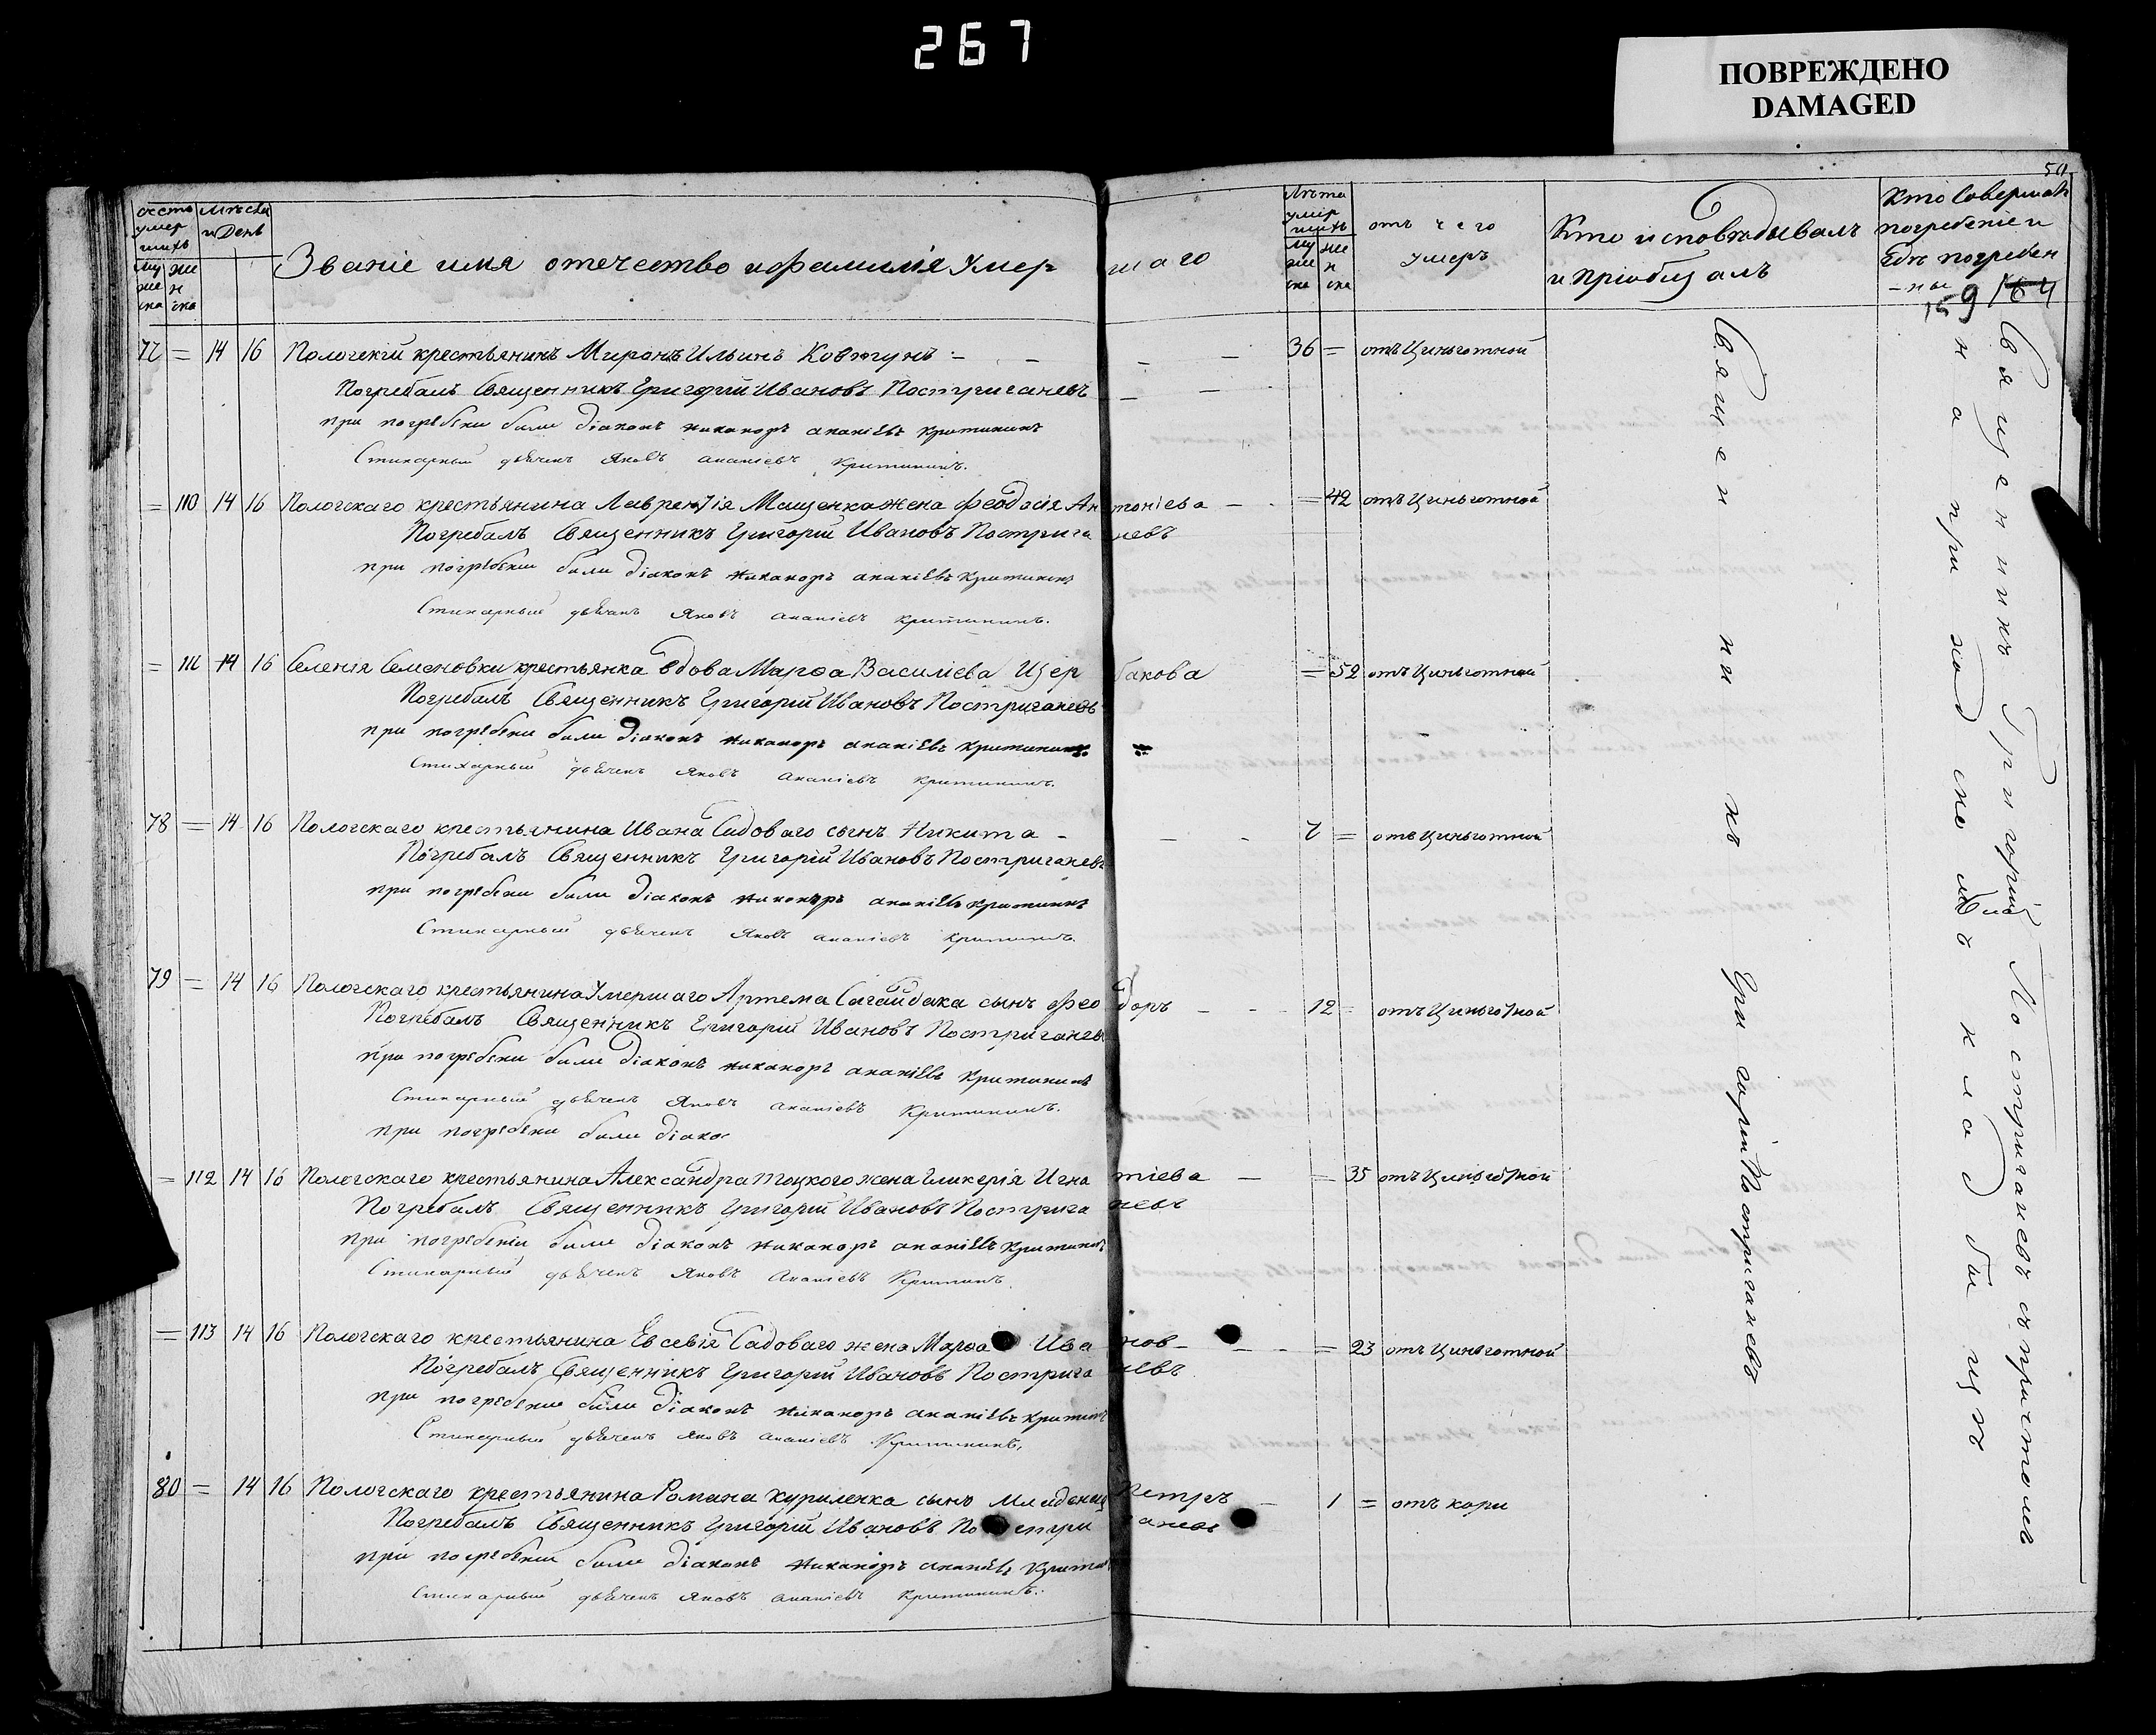 267
ПОВРЕЖДЕНО
DAMAGED
50
Мѣсяц
и День
Званіе имя отечество и фамилія Умер шаго
Лѣта
умер
шихъ
отъ чего
умеръ
Кто исповѣдывалъ
и пріобщалъ
Кто Совершалъ
погребеніе и
Гдѣ погребен
-ны
159 164
77 = 14 16 Пологскій крестьянинъ Миронъ Ильинъ Ковтунъ - - - - 36 = отъ Цынготной
Погребалъ Священникъ Григорій Ивановъ Постриганевъ - -
при погребеніи были Діаконъ Никаноръ Ананіевъ Критининъ
Стихарный дьячекъ Яковъ Ананіевъ Критининъ.
= 110 14 16 Пологскаго крестьянина Лаврентія Мащенка жена Феодосія Антоніева - = 42 отъ Цынготной
Погребалъ Священникъ Григорій Ивановъ Постриганевъ
при погребеніи были Діаконъ Никаноръ Ананіевъ Критининъ
Стихарный дьячекъ Яковъ Ананіевъ Критининъ.
= 111 14 16 Селенія Семеновки крестьянка вдова Марѳа Василіева Щербакова = 52 отъ Цынготной
Погребалъ Священникъ Григорій Ивановъ Постриганевъ
при погребеніи были Діаконъ Никаноръ Ананіевъ Критининъ
Стихарный дьячекъ Яковъ Ананіевъ Критининъ.
78 = 14 16 Пологскаго крестьянина Ивана Садоваго сынъ Никита - - - 7 = отъ Цынготной
Погребалъ Священникъ Григорій Ивановъ Постриганевъ
при погребеніи были Діаконъ Никаноръ Ананіевъ Критининъ
Стихарный дьячекъ Яковъ Ананіевъ Критининъ.
79 = 14 16 Пологскаго крестьянина Умершаго Артема Сагайдака сынъ Феодоръ - - 12 = отъ Цынготной
Погребалъ Священникъ Григорій Ивановъ Постриганевъ
при погребеніи были Діаконъ Никаноръ Ананіевъ Критининъ
Стихарный дьячекъ Яковъ Ананіевъ Критининъ.
при погребеніи были Діако
= 112 14 16 Пологскаго крестьянина Александра Тоцкого жена Гликерія Игнатіева - = 35 отъ Цынготной
Погребалъ Священникъ Григорій Ивановъ Постриганевъ
при погребеніи были Діаконъ Никаноръ Ананіевъ Критининъ
Стихарный дьячекъ Яковъ Ананіевъ Критининъ.
= 113 14 16 Пологскаго крестьянина Евсевія Садоваго жена Марѳа Иванов- - - = 23 отъ Цынготной
Погребалъ Священникъ Григорій Ивановъ Постриганевъ
при погребеніи были Діаконъ Никаноръ Ананіевъ Критининъ
Стихарный дьячекъ Яковъ Ананіевъ Критининъ.
80 = 14 16 Пологскаго крестьянина Романа Куриленка сынъ Младенецъ Петръ - 1 = отъ кори
Погребалъ Священникъ Григорій Ивановъ Постриганевъ
при погребеніи были Діаконъ Никаноръ Ананіевъ Критин
Стихарный дьячекъ Яковъ Ананіевъ Критининъ.
Священникъ Григорій Постриганевъ
Священникъ Григорій Постриганевъ съ причтомъ
на приходскомъ кладбищѣ